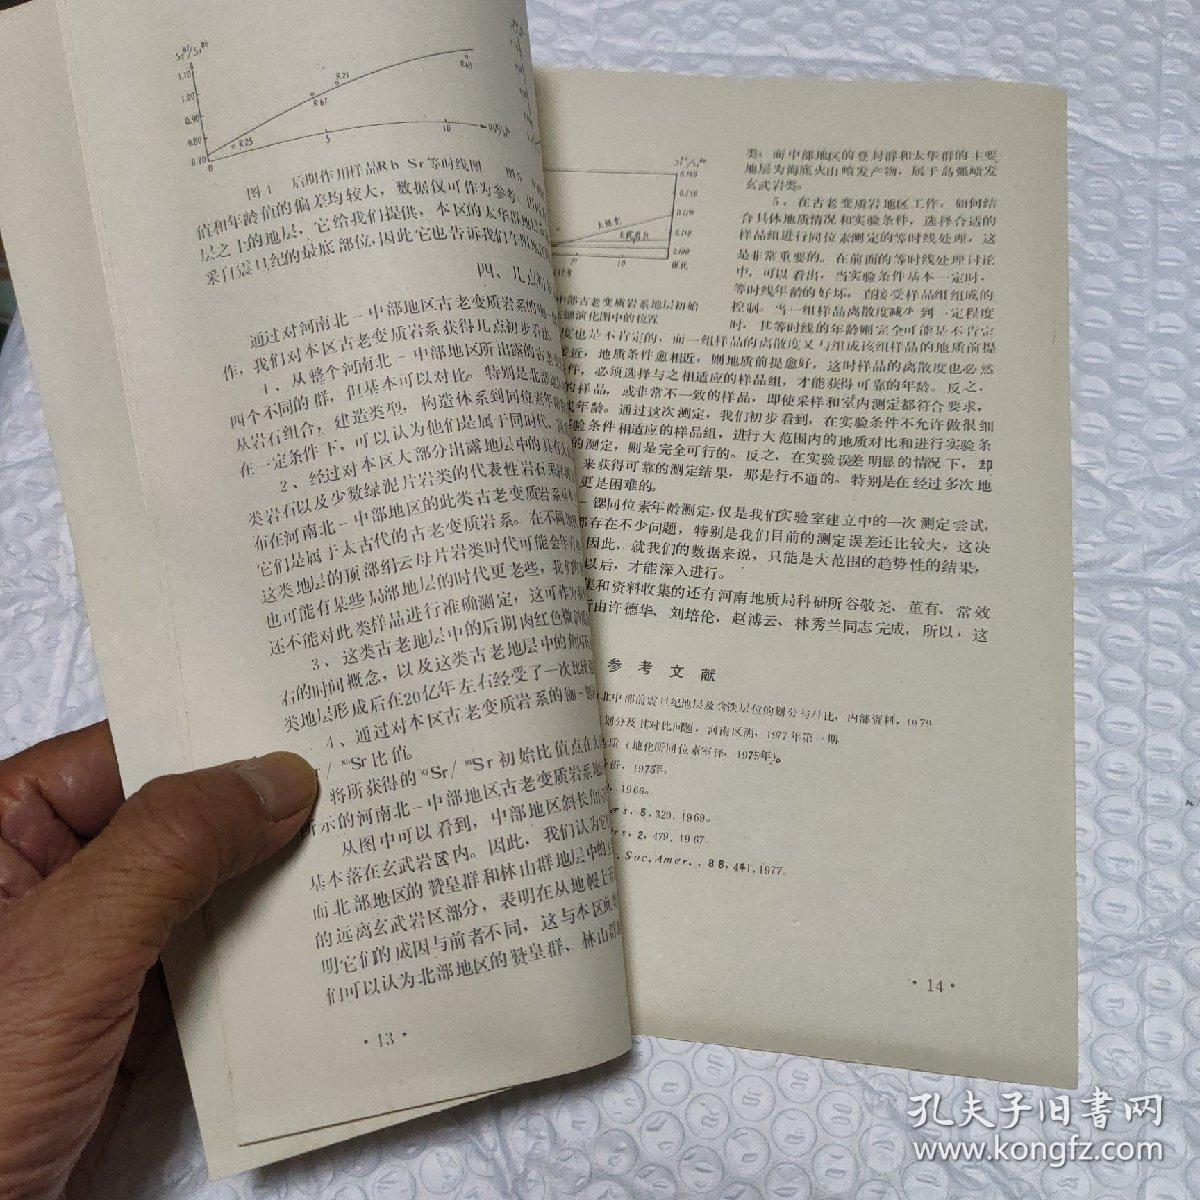 Sr⁸⁷/Sr⁸⁶
1.10
1.00
0.90
0.80
0.70
0
5
10
R25
R67
R21
R63
图4 后期作用样品Rb Sr等时线图
值和年龄值的偏差均较大，数据仅可作为参考。
层之上的地层，它给我们提供，本区的太华群地
采自震旦纪的最底部位，因此它也告诉我们
四、几点
通过对河南北－中部地区古老变质岩系的
作，我们对本区古老变质岩系获得几点初步看法
1、从整个河南北－中部地区所出露的古老
四个不同的群，但基本可以对比。特别是北部
从岩石组合，建造类型，构造体系到同位素年
在一定条件下，可以认为他们是属于同时代
2、经过对本区大部分出露地层中的具有
类岩石以及少数绿泥片岩类的代表性岩石采
布在河南北－中部地区的此类古老变质岩系
它们是属于太古代的古老变质岩系。在不同
这类地层的顶部绢云母片岩类时代可能会年
也可能有某些局部地层的时代更老些，我们
还不能对此类样品进行准确测定，这可作为
3、这类古老地层中的后期肉红色微
石的时间概念，以及这类古老地层中的角闪
类地层形成后在20亿年左右经受了一次比较
4、通过对本区古老变质岩系的铷－锶
/ ⁸⁶Sr比值。
将所获得的⁸⁷Sr/ ⁸⁶Sr初始比值点在
所示的河南北－中部地区古老变质岩系地
从图中可以看到，中部地区斜长角闪
基本落在玄武岩区内。因此，我们认为它
而北部地区的赞皇群和林山群地层中的
的远离玄武岩区部分，表明在从地幔上
明它们的成因与前者不同，这与本区此类
们可以认为北部地区的赞皇群、林山群
·13·
Sr⁸⁷/Sr⁸⁶
0.710
0.700
10
现代
中部古老变质岩系地层初始
锶演化图中的位置
类；而中部地区的登封群和太华群的主要
地层为海底火山喷发产物，属于岛弧喷发
玄武岩类。
5、在古老变质岩地区工作，如何结
合具体地质情况和实验条件，选择合适的
样品组进行同位素测定的等时线处理，这
是非常重要的。在前面的等时线处理讨论
中，可以看出，当实验条件基本一定时，
等时线年龄的好坏，直接受样品组组成的
控制。当一组样品离散度减少到一定程度
时，其等时线的年龄则完全可能是不肯定
度也是不肯定的，而一组样品的离散度又与组成该组样品的地质前提
接近，地质条件愈相近，则地质前提愈好，这时样品的离散度也必然
件，必须选择与之相适应的样品组，才能获得可靠的年龄。反之，
的样品，或非常不一致的样品，即使采样和室内测定都符合要求，
年龄。通过这次测定，我们初步看到，在实验条件不允许做很细
验条件相适应的样品组，进行大范围内的地质对比和进行实验条
的测定，则是完全可行的。反之，在实验误差明显的情况下，却
来获得可靠的测定结果，那是行不通的。特别是在经过多次地
更是困难的。
－锶同位素年龄测定，仅是我们实验室建立中的一次测定尝试，
都存在不少问题，特别是我们目前的测定误差还比较大，这决
因此，就我们的数据来说，只能是大范围的趋势性的结果，
以后，才能深入进行。
集和资料收集的还有河南地质局科研所谷敬尧、董有、常效
所由许德华、刘培伦、赵溥云、林秀兰同志完成，所以，这
参考文献
北中部前震旦纪地层及含铁层位的划分与对比，内部资料，1979
划分及其对比问题，河南区测，1977年第一期
质（地化所同位素室译，1975年）。
析，1975年。
，1966。
rs，5，320，1969。
rs，2，479，1967。
. Soc. Amer.，88，441，1977。
·14·
孔夫子旧书网
www.kongfz.com